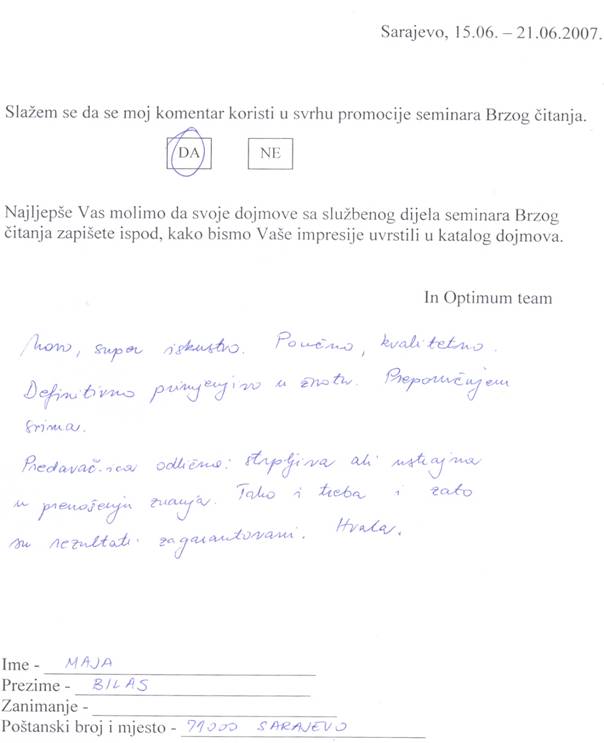 Sarajevo, 15.06. – 21.06.2007.
Slažem se da se moj komentar koristi u svrhu promocije seminara Brzog čitanja.
DA NE
Najljepše Vas molimo da svoje dojmove sa službenog dijela seminara Brzog
čitanja zapišete ispod, kako bismo Vaše impresije uvrstili u katalog dojmova.
In Optimum team
Novo, super iskustvo. Poučno, kvalitetno.
Definitivno primjenjivo u životu. Preporučujem
svima.
Predavač-ica odlična: strpljiva ali ustrajna
u prenošenju znanja. Tako i treba i zato
su rezultati zagarantovani. Hvala.
Ime - MAJA
Prezime - BILAS
Zanimanje -
Poštanski broj i mjesto - 71000 SARAJEVO